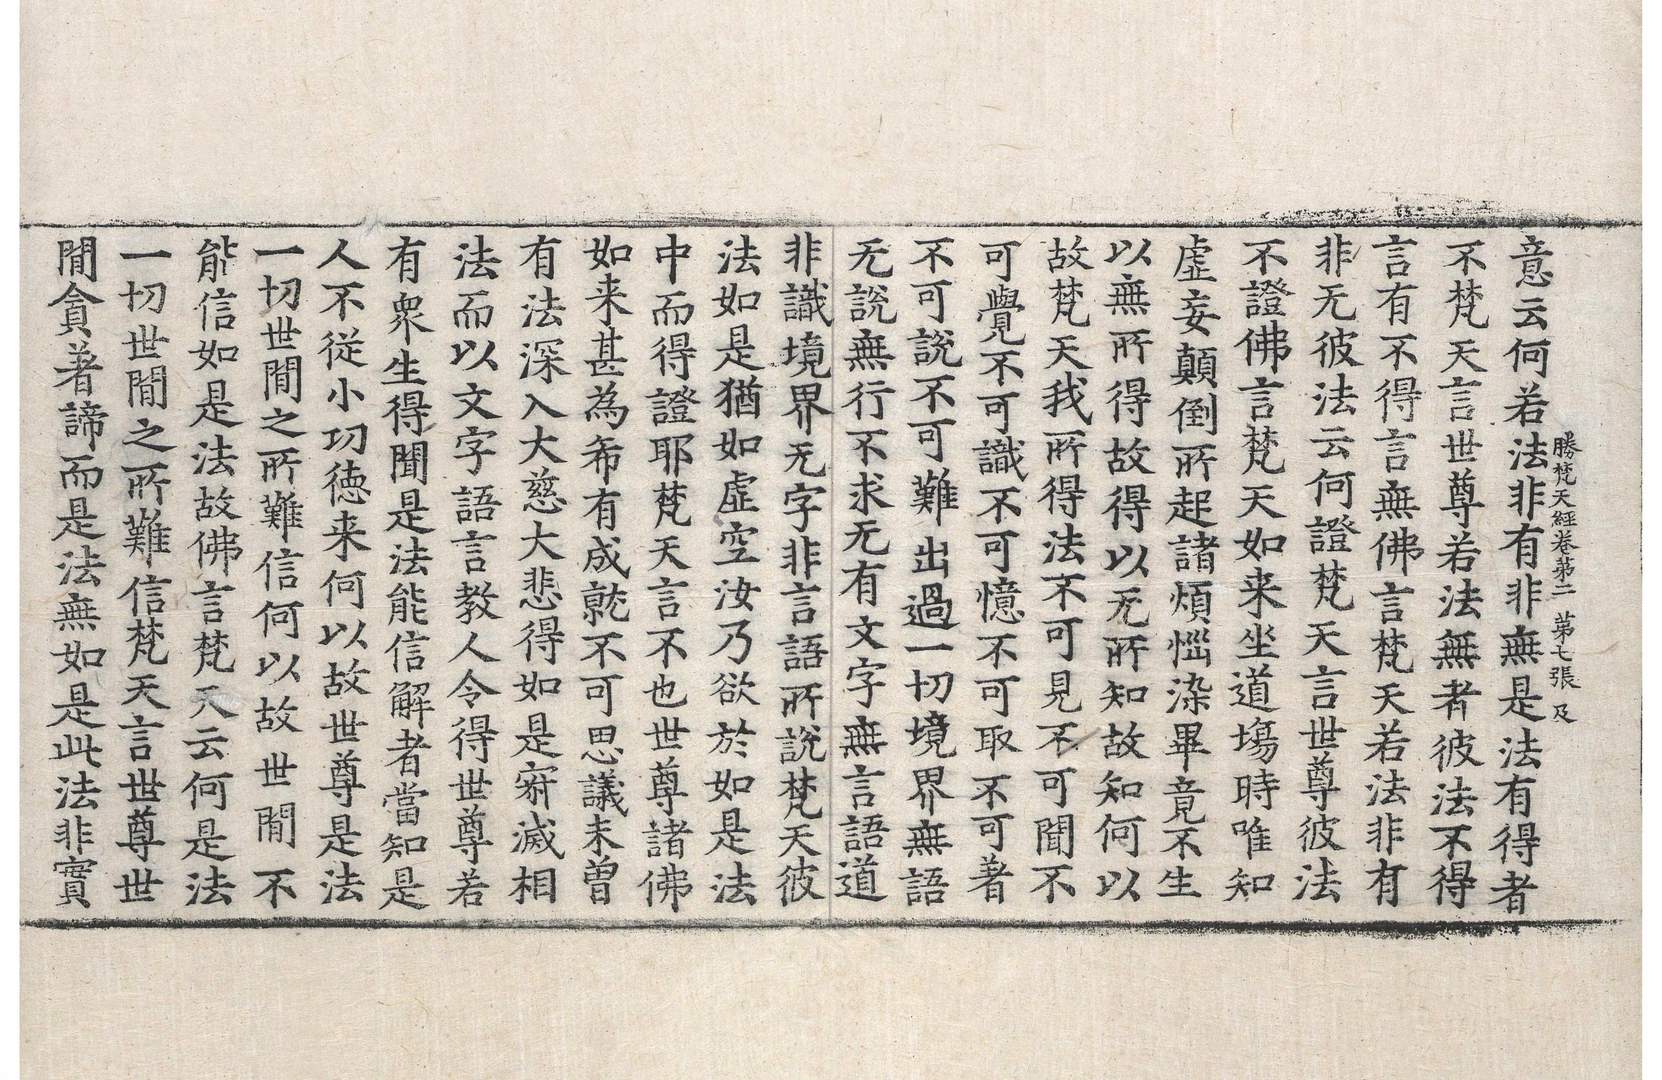 勝梵天經卷第二　第七張　及
意云何若法非有非無是法有得者
不梵天言世尊若法無者彼法不得
言有不得言無佛言梵天若法非有
非无彼法云何證梵天言世尊彼法
不證佛言梵天如来坐道塲時唯知
虛妄顛倒所起諸煩惱染畢竟不生
以無所得故得以无所知故知何以
故梵天我所得法不可見不可聞不
可覺不可識不可憶不可取不可著
不可說不可難出過一切境界無語
无說無行不求无有文字無言語道
非識境界无字非言語所說梵天彼
法如是猶如虛空汝乃欲於如是法
中而得證耶梵天言不也世尊諸佛
如来甚為希有成就不可思議未曽
有法深入大慈大悲得如是寂滅相
法而以文字語言教人令得世尊若
有衆生得聞是法能信解者當知是
人不從小功徳来何以故世尊是法
一切世閒之所難信何以故世閒不
能信如是法故佛言梵天云何是法
一切世閒之所難信梵天言世尊世
閒貪著諦而是法無如是此法非實